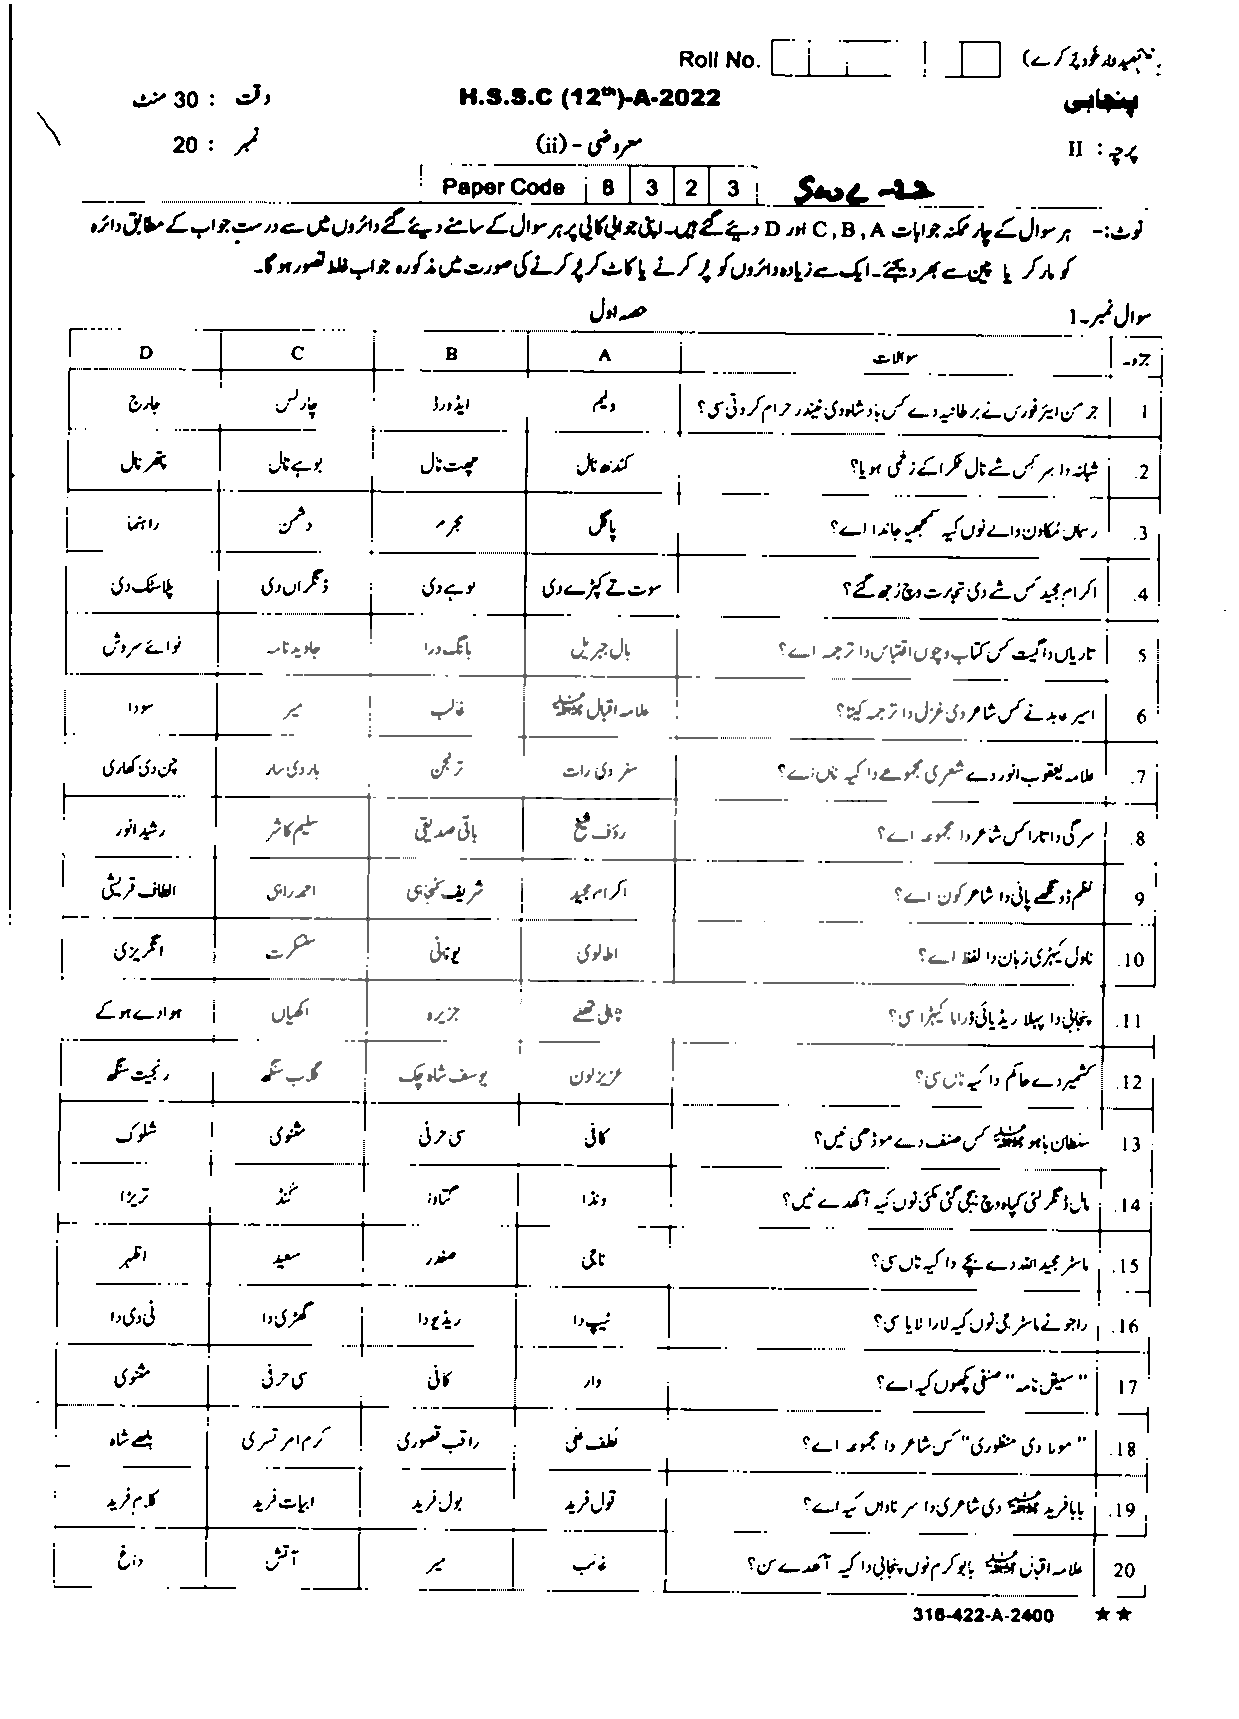 Roll No. (امیدوار خود پُر کرے)
پنجابی H.S.S.C (12th)-A-2022 وقت : 30 منٹ
پرچہ : II معروضی - (ii) نمبر : 20
Paper Code 8 3 2 3
نوٹ:- ہر سوال کے چار ممکنہ جوابات C , B , A اور D دیئے گئے ہیں۔ اپنی جوابی کاپی پر ہر سوال کے سامنے دیئے گئے دائروں میں سے درست جواب کے مطابق دائرہ
کو مارکر یا پین سے بھر دیجئے۔ ایک سے زیادہ دائروں کو پُر کرنے یا کاٹ کر پُر کرنے کی صورت میں مذکورہ جواب غلط تصور ہوگا۔
سوال نمبر۔1 حصہ اول
سوالات A B C D
1 جرمن ایئر فورس نے برطانیہ دے کس بادشاہ دی نیندر حرام کر دتی سی؟ ولیم ایڈورڈ چارلس جارج
2. شبانہ دا سر کس شے نال ٹکرا کے زخمی ہویا؟ کندھ نال چھت نال بوہے نال پتھر نال
3. رسماں مکاون والے نوں کیہ سمجھیا جاندا اے؟ پاگل مجرم دشمن راہنما
4. اکرام مجید کس شے دی تجارت وچ رُجھ گئے؟ سوت تے کپڑے دی لوہے دی ڈنگراں دی پلاسٹک دی
5 تاریاں دا گیت کس کتاب وچوں اقتباس دا ترجمہ اے؟ بال جبریل بانگ درا جاوید نامہ نوائے سروش
6 اسیر عابد نے کس شاعر دی غزل دا ترجمہ کیتا؟ علامہ اقبالؒ غالب میر سودا
7. علامہ یعقوب انور دے شعری مجموعے دا کیہ ناں اے؟ سفر دی رات ترنجن ہار دی سار چن دی کھاری
8. سرگی دا تارا کس شاعر دا مجموعہ اے؟ رؤف شیخ باقی صدیقی سلیم کاشر رشید انور
9 نظم ڈونگھے پانی دا شاعر کون اے؟ اکرام مجید شریف کنجاہی احمد راہی الطاف قریشی
10. ناول کیہڑی زبان دا لفظ اے؟ اطالوی یونانی سنسکرت انگریزی
11. پنجابی دا پہلا ریڈیائی ڈراما کیہڑا سی؟ چہلی تھلے جزیرہ اکھیاں ہوادے ہوکے
12. کشمیر دے حاکم دا کیہ ناں سی؟ عزیز لون یوسف شاہ چک گلاب سنگھ رنجیت سنگھ
13 سلطان باہوؒ کس صنف دے موڈھی نیں؟ کافی سی حرفی مثنوی شلوک
14. مال ڈنگر لئی کپاہ وچ بیجی گئی مکئی نوں کیہ آکھدے نیں؟ ونڈا گتاوہ گنڈ تریڑا
15. ماسٹر مجید اللہ دے بچے دا کیہ ناں سی؟ ناجی صفدر سعید اظہر
16. راجو نے ماسٹر جی نوں کیہ لارا لایا سی؟ ٹیپ دا ریڈیو دا گھڑی دا ٹی وی دا
17 "سیفل نامہ" صنفی پکھوں کیہ اے؟ وار کافی سی حرفی مثنوی
18. دی منظوری" کس شاعر دا مجموعہ اے؟ لطف علی راقب قصوری کرم امرتسری بلھے شاہ
19. بابا فریدؒ دی شاعری دا سرناواں کیہ اے؟ قول فرید بول فرید ابیات فرید کلام فرید
20 علامہ اقبالؒ بابو کرم نوں پنجابی دا کیہ آکھدے سن؟ غالب میر آتش داغ
316-422-A-2400 ★★